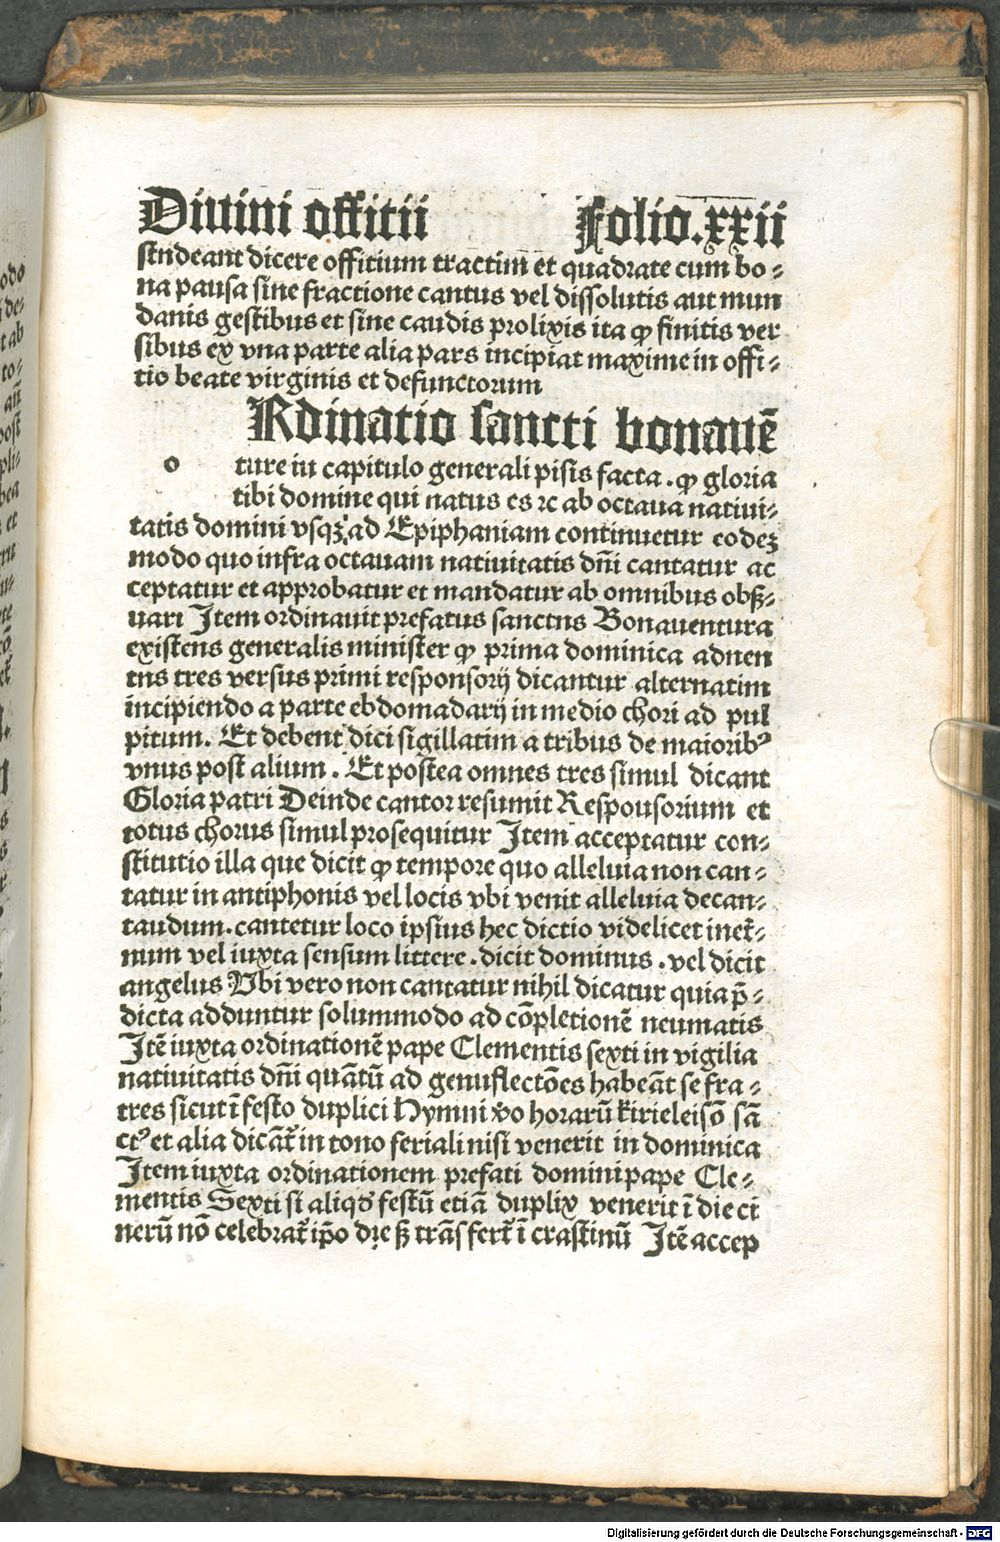 Diuini offitii Folio.xxii
stndeant dicere offitium tractim et quadrate cum bo⸗
na pausa sine fractione cantus vel dissolutis aut mun
danis gestibus et sine caudis prolixis ita ꝙ finitis ver
sibus ex vna parte alia pars incipiat maxime in offi⸗
tio beate virginis et defunctorum
Rdinatio sancti bonauē
o ture in capitulo generali pisis facta .ꝙ gloria
tibi domine qui natus es ⁊c ab octaua natiui⸗
tatis domini vsqꝫ ad Epiphaniam continuetur eodeꝫ
modo quo infra octauam natiuitatis dn̄i cantatur ac
ceptatur et approbatur et mandatur ab omnibus obẜ⸗
uari Item ordinauit prefatus sanctus Bonauentura
existens generalis minister ꝙ prima dominica aduen
tus tres versus primi responsorij dicantur alternatim
incipiendo a parte ebdomadarij in medio chori ad pul
pitum. Et debent dici sigillatim a tribus de maioribꝰ
vnus post alium. Et postea omnes tres simul dicant
Gloria patri Deinde cantor resumit Responsorium et
totus chorus simul prosequitur Item acceptatur con⸗
stitutio illa que dicit ꝙ tempore quo alleluia non can⸗
tatur in antiphonis vel locis vbi venit alleluia decan⸗
taudum.cantetur loco ipsius hec dictio videlicet inet̄⸗
num vel iuxta sensum littere.dicit dominus.vel dicit
angelus Vbi vero non cantatur nihil dicatur quia p̄⸗
dicta adduntur solummodo ad cōpletionē neumatis
Itē iuxta ordinationē pape Clementis sexti in vigilia
natiuitatis dn̄i quātū ad genuflectōes habeāt se fra⸗
tres sicut ī festo duplici Hymni v̄o horarū kirieleisō sā
ctꝰ et alia dicāt̄ in tono feriali nisi venerit in dominica
Item iuxta ordinationem prefati domini pape Cle⸗
mentis Sexti si aliqd̓ festū etiā duplix venerit ī die ci
nerū nō celebrat̄ ip̄o die ẜ trāsfert̄ ī crastinū Itē accep
odo
de⸗
t ab
to⸗
post
pli⸗
bea
et
Digitalisierung gefördert durch die Deutsche Forschungsgemeinschaft - DFG